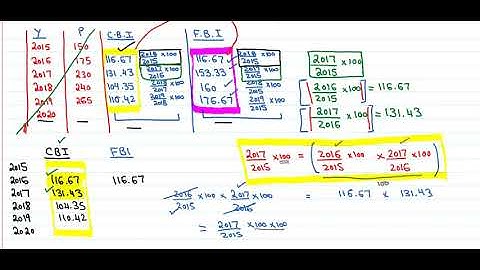 Y P C.B.I F.B.I
2015 150
2016 175 116.67 2016/2015 x100 116.67 2016/2015 x100
2017 230 131.43 2017/2016 x100 153.33 2017/2015 x100
2018 240 104.35 2018/2017 x100 160 2018/2015 x100
2019 265 110.42 2019/2018 x100 176.67 2019/2015 x100
2020
2017/2015 x100
[2016/2015 x100] = 116.67
[2017/2016 x100] = 131.43
CBI FBI
2015
2016 116.67 116.67
2017 131.43
2018 104.35
2019 110.42
2020
2017/2015 x100 = (2016/2015 x100 x 2017/2016 x100)
100
2016/2015 x100 x 2017/2016 x100 = 116.67 x 131.43
= 2017/2015 x100 x100